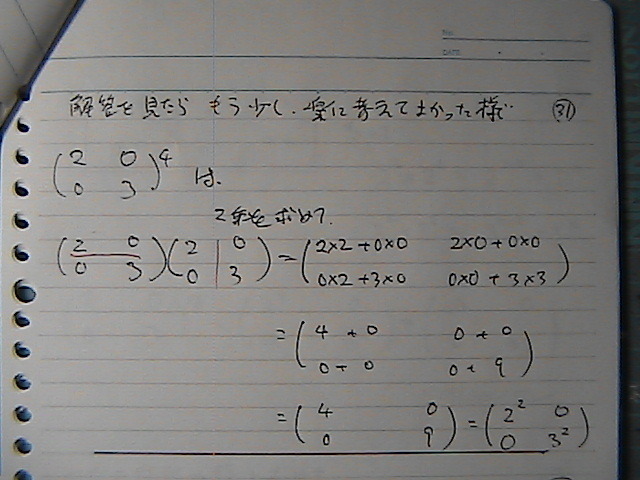 No.
DATE
解答を見たら もう少し、楽に考えてよかった様で ㉛
(2 0
0 3)^4 は、
2乗を求めて、
(2 0
0 3)(2 0
0 3) = (2×2+0×0 2×0+0×0
0×2+3×0 0×0+3×3)
= (4+0 0+0
0+0 0+9)
= (4 0
0 9) = (2^2 0
0 3^2)